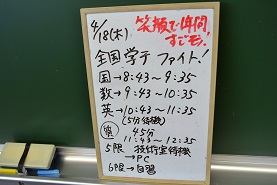 笑顔で1年間
すごそう!
4/18(木)
全国学テ ファイト!
国→8:43~9:35
数→9:43~10:35
英→10:43~11:35
(5分待機)
45分
11:43~12:35
5限 技術室待機
→PC
6限→自習